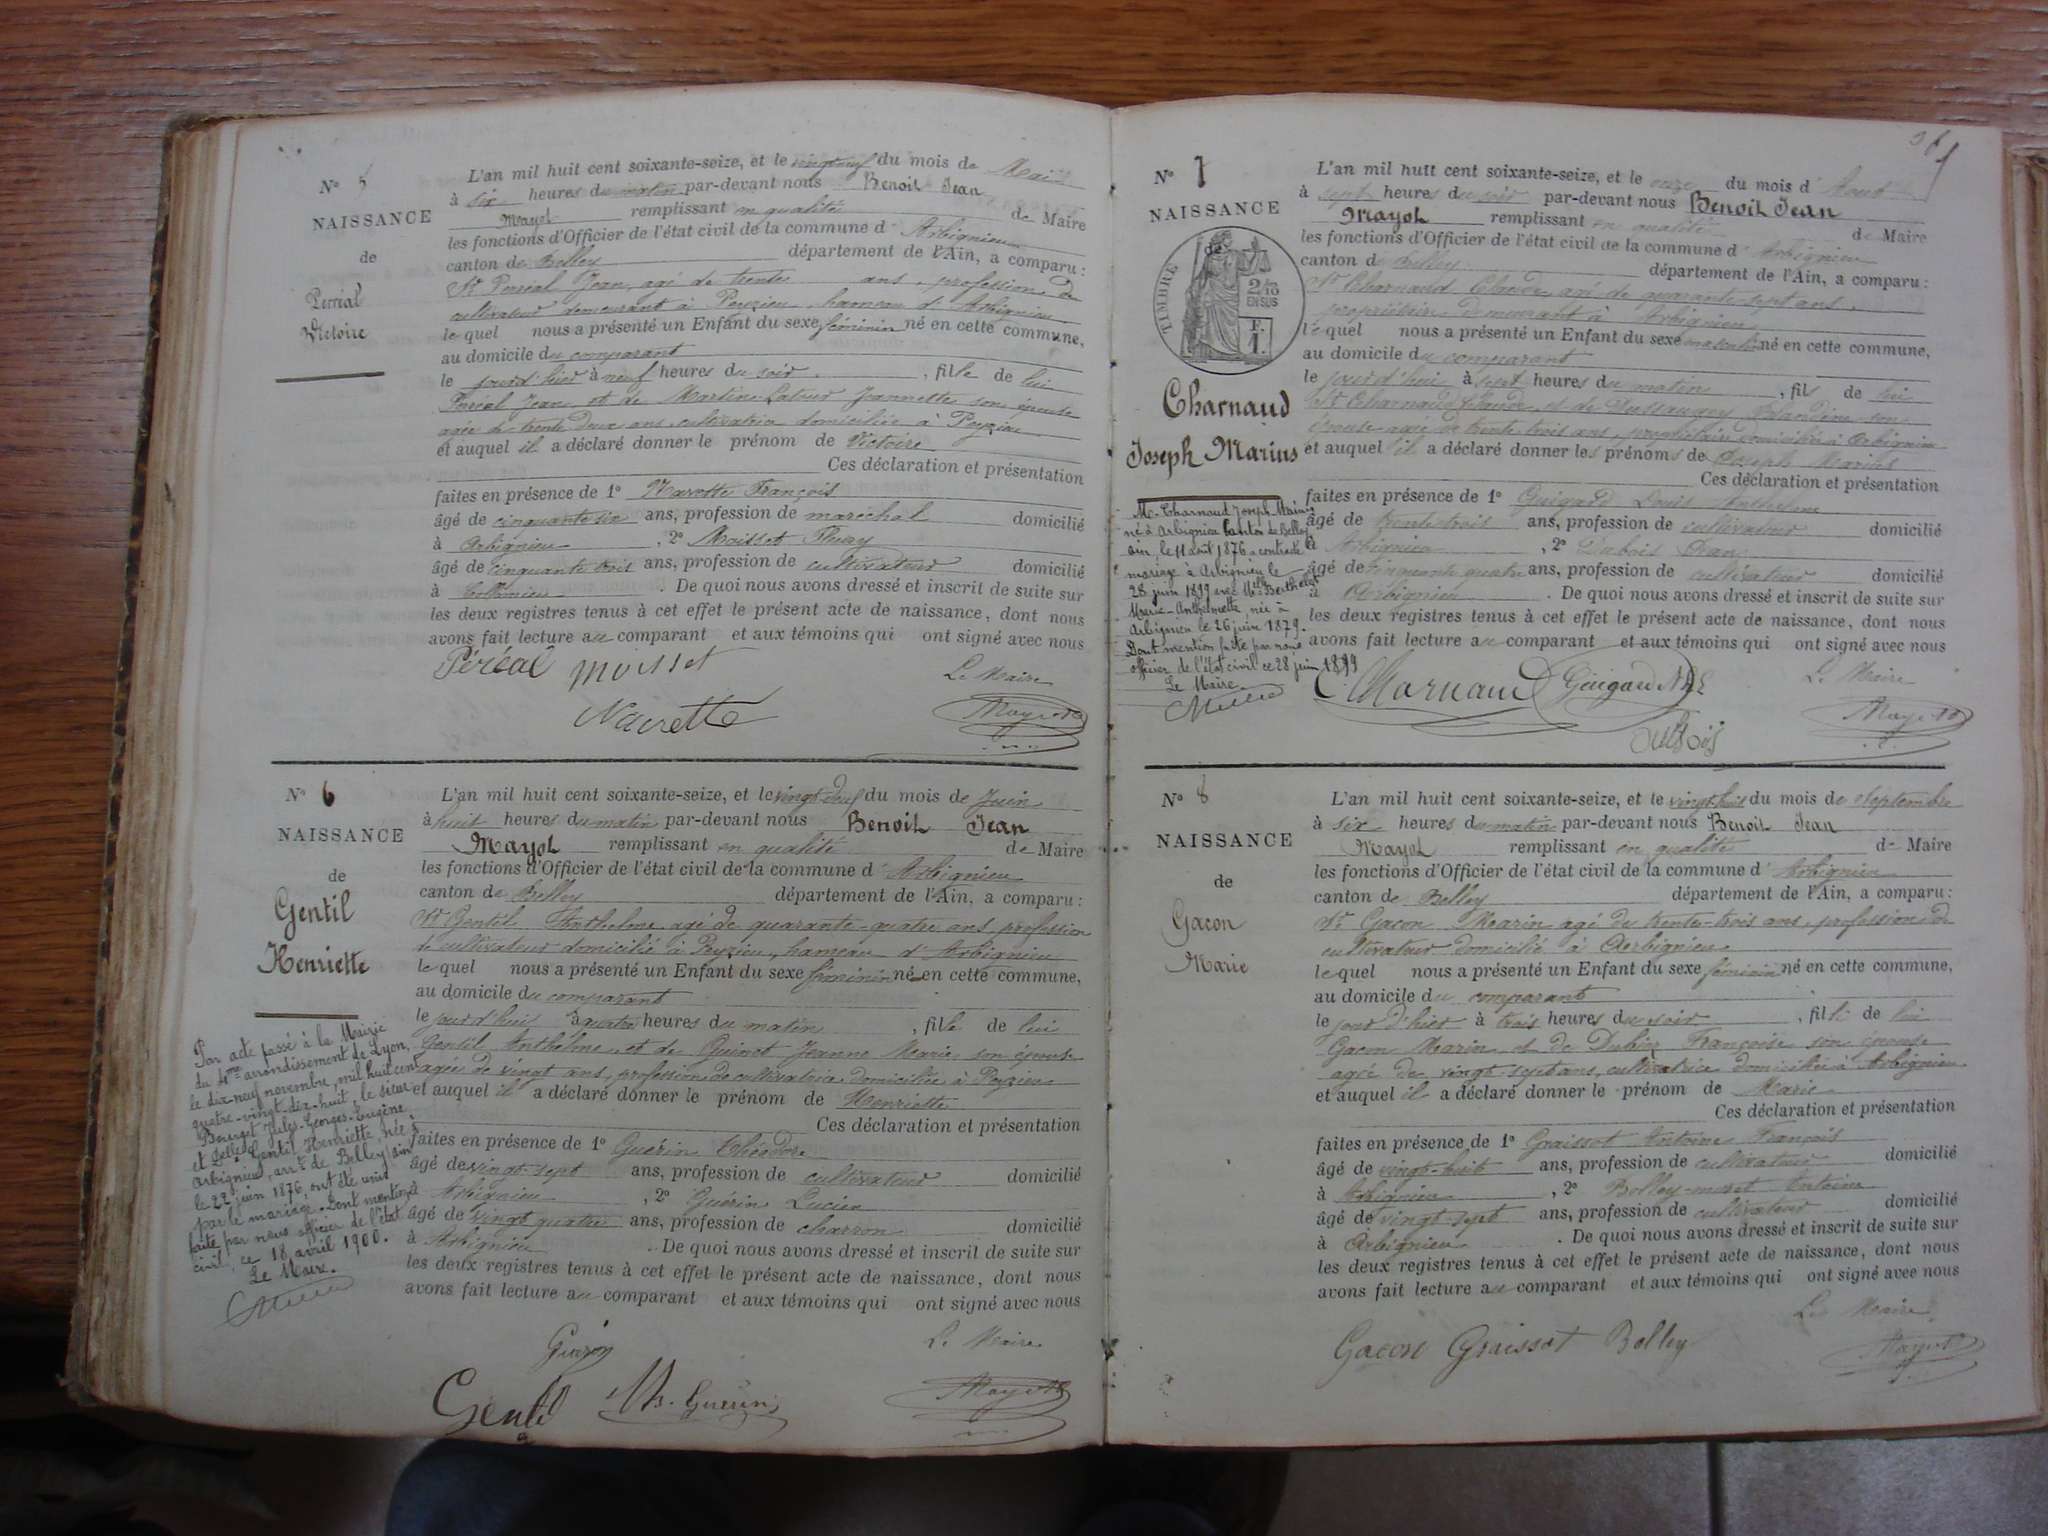 N° 5
NAISSANCE
de
Perréal
Victoire
L'an mil huit cent soixante-seize, et le vingt neuf du mois de Mai
à six heures du matin par-devant nous Benoit Jean
Mayot remplissant en qualité de Maire
les fonctions d'Officier de l'état civil de la commune d'Arbignieu
canton de Belley département de l'Ain, a comparu :
Sr Perréal Jean, agé de trente ans, profession de
cultivateur demeurant à Peyzieu, hameau d'Arbignieu
lequel nous a présenté un Enfant du sexe féminin né en cette commune,
au domicile du comparant
le jour d'hier à neuf heures du soir, fille de lui
Perréal Jean et de Martin Latour Jeannette son épouse
agée de trente deux ans, cultivatrice domiciliée à Peyzieu
et auquel il a déclaré donner le prénom de Victoire
Ces déclaration et présentation
faites en présence de 1° Navette François
âgé de cinquante six ans, profession de maréchal domicilié
à Arbignieu, 2° Moisset Fleury
âgé de cinquante trois ans, profession de cultivateur domicilié
à Collomieu. De quoi nous avons dressé et inscrit de suite sur
les deux registres tenus à cet effet le présent acte de naissance, dont nous
avons fait lecture au comparant et aux témoins qui ont signé avec nous
Péréal Moisset Le Maire
Navette Mayot
N° 6
NAISSANCE
de
Gentil
Henriette
Par acte passé à la Mairie
du 4me arrondissement de Lyon,
le dix-neuf novembre, mil huit cent
quatre-vingt-dix-huit, le sieur
Bourget Jules-Georges-Eugène,
et Delle Gentil Henriette, née à
Arbignieu, arrt de Belley (Ain)
le 22 juin 1876, ont été unis
par le mariage. Dont mention
faite par nous officier de l'état
civil, ce 18 avril 1900.
Le Maire.
L'an mil huit cent soixante-seize, et le vingt deux du mois de Juin
à huit heures du matin par-devant nous Benoit Jean
Mayot remplissant en qualité de Maire
les fonctions d'Officier de l'état civil de la commune d'Arbignieu
canton de Belley département de l'Ain, a comparu :
Sr Gentil Anthelme agé de quarante-quatre ans profession
de cultivateur domicilié à Peyzieu, hameau d'Arbignieu
lequel nous a présenté un Enfant du sexe féminin né en cette commune,
au domicile du comparant
le jour d'hui à quatre heures du matin, fille de lui
Gentil Anthelme, et de Quinet Jeanne Marie, son épouse
agée de vingt ans, profession de cultivatrice domiciliée à Peyzieu
et auquel il a déclaré donner le prénom de Henriette
Ces déclaration et présentation
faites en présence de 1° Guérin Théodore
âgé de vingt-sept ans, profession de cultivateur domicilié
à Arbignieu, 2° Guérin Lucien
âgé de vingt quatre ans, profession de charron domicilié
à Arbignieu. De quoi nous avons dressé et inscrit de suite sur
les deux registres tenus à cet effet le présent acte de naissance, dont nous
avons fait lecture au comparant et aux témoins qui ont signé avec nous
Guérin Le Maire
Gentil Th. Guérin Mayot
N° 7
NAISSANCE
de
TIMBRE
2/10
EN SUS
F.
1.
Charnaud
Joseph Marius
M. Charnaud Joseph Marius
né à Arbignieu canton de Belley
Ain, le 11 août 1876 a contracté
mariage à Arbignieu le
28 juin 1899 avec Mlle Berthelet
Marie-Anthelmette, née à
Arbignieu le 26 juin 1879.
Dont mention faite par nous
officier de l'état civil ce 28 juin 1899
Le Maire
L'an mil huit cent soixante-seize, et le onze du mois d'Aout
à sept heures du soir par-devant nous Benoit Jean
Mayot remplissant en qualité de Maire
les fonctions d'Officier de l'état civil de la commune d'Arbignieu
canton de Belley département de l'Ain, a comparu :
Sr Charnaud Claude agé de quarante-sept ans,
propriétaire demeurant à Arbignieu
lequel nous a présenté un Enfant du sexe masculin né en cette commune,
au domicile du comparant
le jour d'hui à sept heures du matin, fils de lui
Sr Charnaud Claude, et de Dussaugey Blandine son
épouse agée de trente trois ans, propriétaire domiciliée à Arbignieu
et auquel il a déclaré donner les prénoms de Joseph Marius
Ces déclaration et présentation
faites en présence de 1° Guigard Louis Anthelme
âgé de trente trois ans, profession de cultivateur domicilié
à Arbignieu, 2° Dubois Jean
âgé de cinquante quatre ans, profession de cultivateur domicilié
à Arbignieu. De quoi nous avons dressé et inscrit de suite sur
les deux registres tenus à cet effet le présent acte de naissance, dont nous
avons fait lecture au comparant et aux témoins qui ont signé avec nous
Charnaud Guigard Le Maire
Dubois Mayot
N° 8
NAISSANCE
de
Gacon
Marie
L'an mil huit cent soixante-seize, et le vingt huit du mois de Septembre
à six heures du matin par-devant nous Benoit Jean
Mayot remplissant en qualité de Maire
les fonctions d'Officier de l'état civil de la commune d'Arbignieu
canton de Belley département de l'Ain, a comparu :
Sr Gacon Marin agé de trente-trois ans, profession de
cultivateur domicilié à Arbignieu
lequel nous a présenté un Enfant du sexe féminin né en cette commune,
au domicile du comparant
le jour d'hier à trois heures du soir, fille de lui
Gacon Marin et de Françoise son épouse
agée de vingt-sept ans, cultivatrice domiciliée à Arbignieu
et auquel il a déclaré donner le prénom de Marie
Ces déclaration et présentation
faites en présence de 1° Graissot Antoine François
âgé de vingt-huit ans, profession de cultivateur domicilié
à Arbignieu, 2° Bolley-moret Antoine
âgé de vingt-sept ans, profession de cultivateur domicilié
à Arbignieu. De quoi nous avons dressé et inscrit de suite sur
les deux registres tenus à cet effet le présent acte de naissance, dont nous
avons fait lecture au comparant et aux témoins qui ont signé avec nous
Le Maire
Gacon Graissot Bolley Mayot